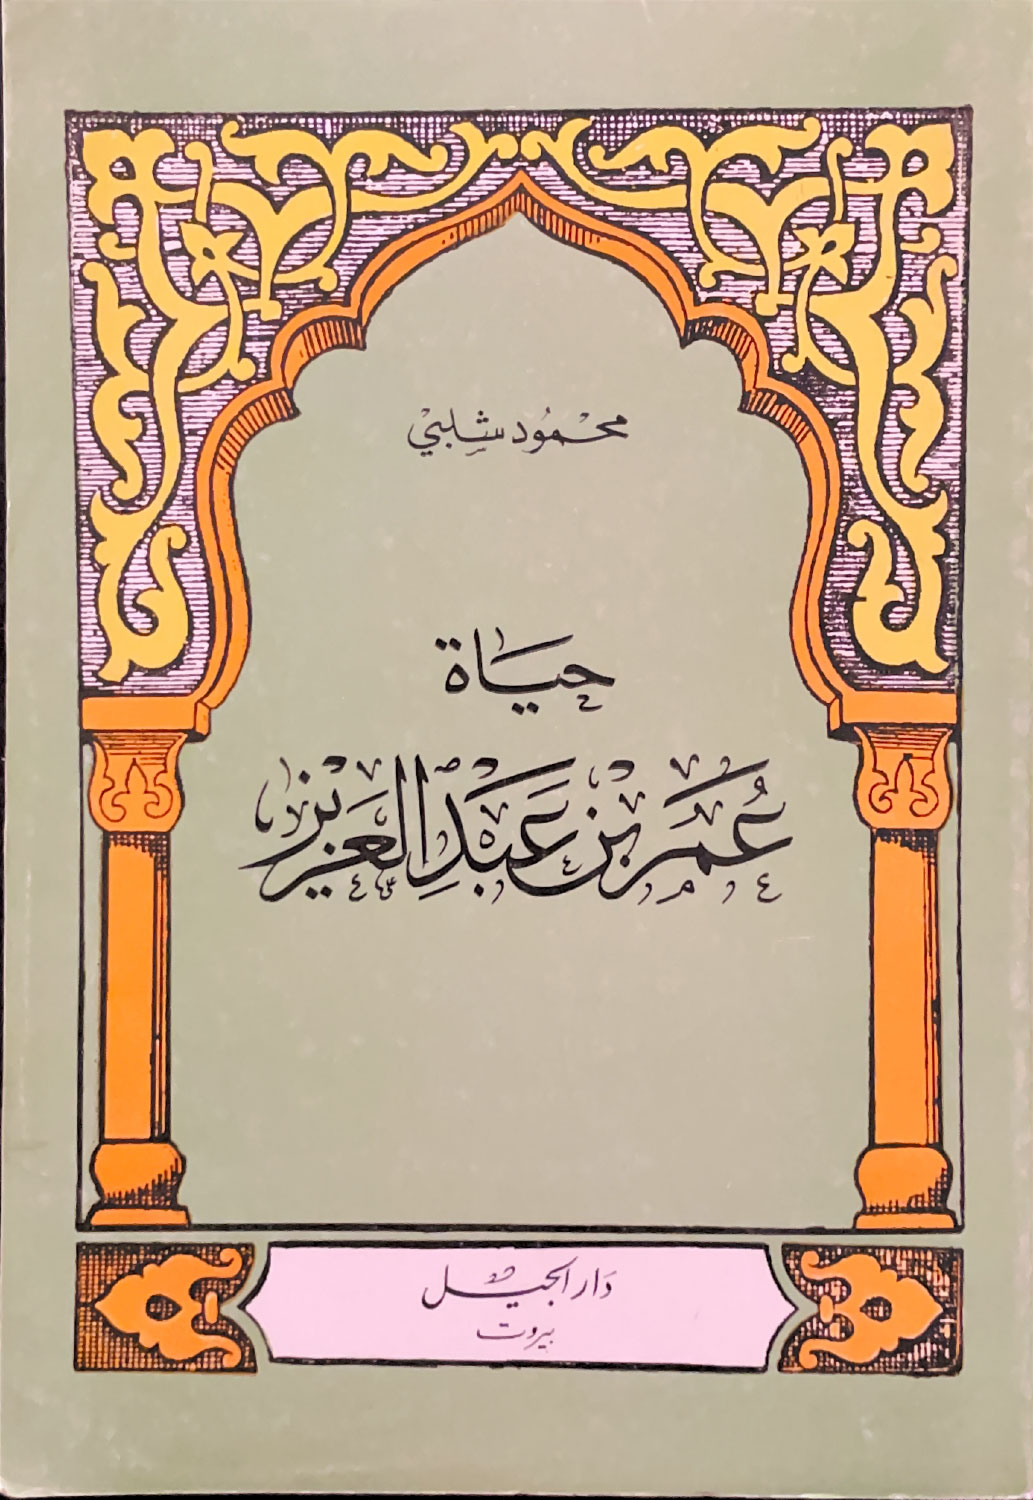 محمُود شلِبي
حيَاة
عُمَر بْن عَبْدِ العَزيْز
دَار الجيل
بيروت